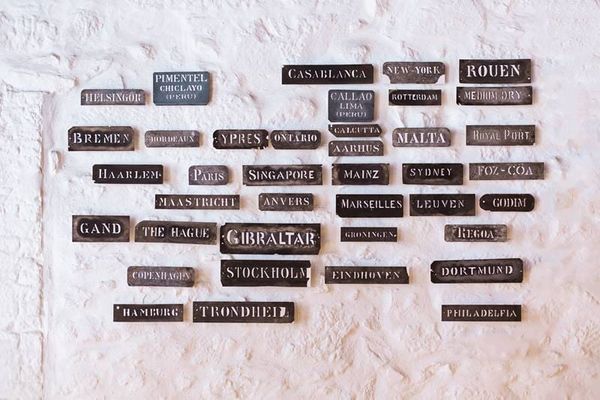 CASABLANCA
NEW-YORK
ROUEN
PIMENTEL
CHICLAYO
(PERU)
HELSINGÖR
CALLAO
LIMA
(PERU)
ROTTERDAM
MEDIUM DRY
BREMEN
BORDEAUX
YPRES
ONTÁRIO
CALCUTTA
AARHUS
MALTA
ROYAL PORT
HAARLEM
PARIS
SINGAPORE
MAINZ
SYDNEY
FOZ-CÔA
MAASTRICHT
ANVERS
MARSEILLES
LEUVEN
GODIM
GAND
THE HAGUE
GIBRALTAR
GRONINGEN
REGOA
COPENHAGEN
STOCKHOLM
EINDHOVEN
DORTMUND
HAMBURG
TRONDHEIL
PHILADELFIA